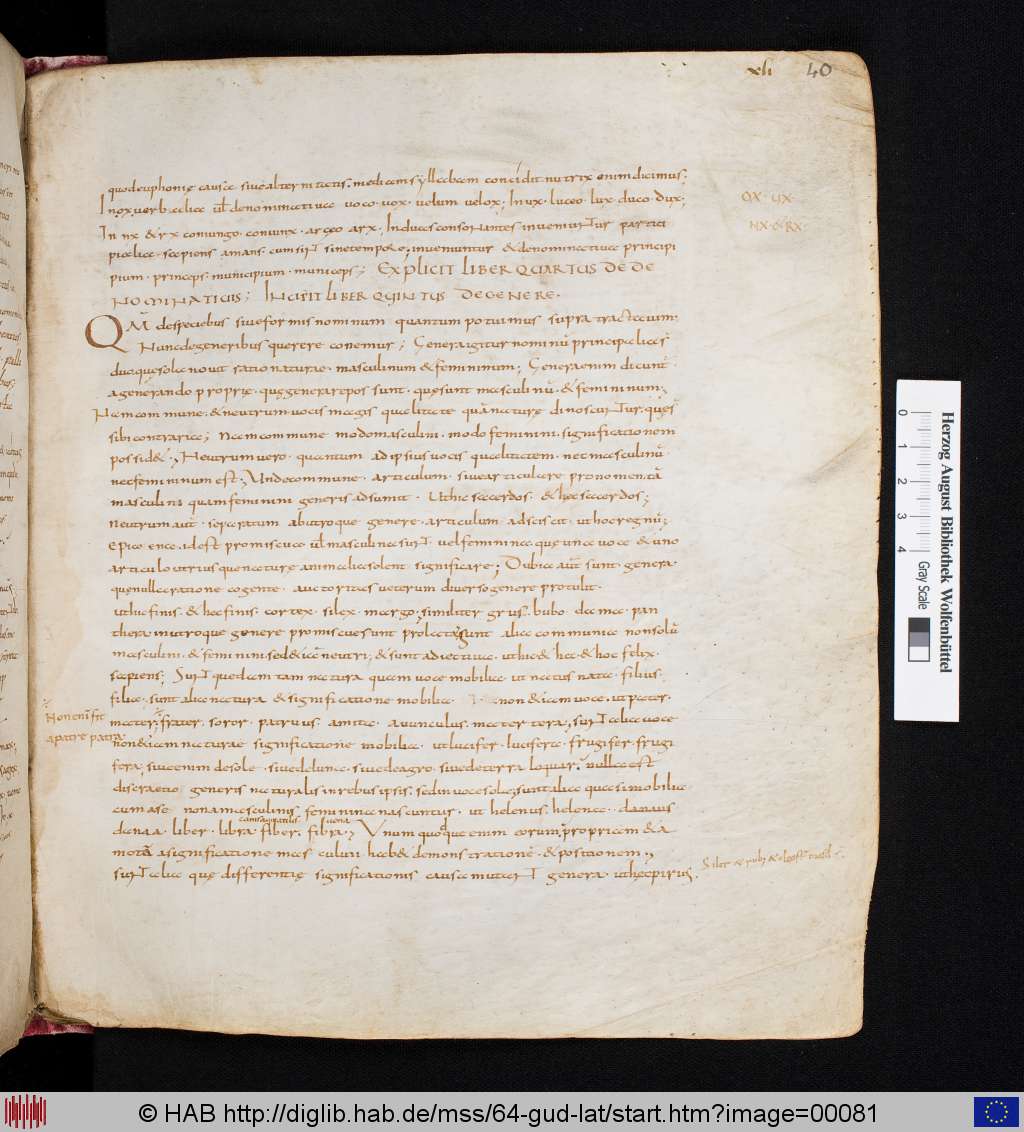 xli 40
quod euphonię causa sive alternitatis. mediam syllabam concidit nutrix enim dicimus;
Inox verbalia vel denominativa voco vox. velum velox; In ux. luceo lux duco dux;
In nx & rx coniungo. coniunx. arceo arx; In duas consonantes inveniuntur partici
pialia. sapiens amans. cum sint sine tempore; inveniuntur & denominativa principi
pium. princeps. municipium. municeps; EXPLICIT LIBER QUARTUS DE DE
NOMINATIUIS; INCIPIT LIBER QUINTUS DE GENERE.
QM de speciebus sive formis nominum quantum potuimus supra tractavimus
Nunc de generibus querere conemur; Genera igitur nominū principalia s̄
duaque sola novit ratio naturae. masculinum & femininum; Genera enim dicunt̄
a generando proprię. quę generare possunt. quę sunt masculinū. & femininum;
Nam commune. & neutrum vocis magis qualitate quā naturę dinoscuntur. quę s̄
sibi contraria; Nam commune modo masculini. modo feminini significationem
possid&; Neutrum vero. quantum ad ipsius vocis qualitatem. nec masculinū
nec femininum est; Unde commune. articulum. sive articulare pronomen tā
masculini quam feminini generis adsumit. Ut hic sacerdos. & hęc sacerdos;
Neutrum aut̄ separatum ab utroque genere. articulum adsciscit. ut hoc regnū;
Epicoena. id est promiscua vel masculina sunt vel feminina. quę una voce & uno
articulo utriusque naturę animalia solent significare; Dubia aut̄ sunt genera
que nulla ratione cogente. auctoritas veterum diverso genere protulit.
ut hic finis. & hęc finis. cortex. silex. margo. similiter grus. bubo. damma. pan
thera in utroque genere promiscue sunt prolata; sunt alia communia non solū
masculini. & feminini sed & iā neutri; & sunt adiectiva. ut hic & hęc & hoc felix.
sapiens; Sunt quedam tam natura quam voce mobilia. ut natus nata. filius.
filia. sunt alia natura & significatione mobilia. non & iam voce. ut pater.
mater; frater. soror. patruus. amita. avunculus. matertera; sunt alia voce
non & iam naturae significatione mobilia. ut lucifer. lucifera. frugifer. frugi
fera; sive enim de sole. sive de luna. sive de agro. sive de terra loquar. nulla est
discraetio generis naturalis in rebus ipsis. sed in voce sola; sunt alia quasi mobilia
cum a se non a masculinis feminina nascuntur. ut helenus. helena. danaus
danaa. liber. libra. fiber. fibra; Unum quoque enim eorum propriam & a
motā a significatione masculini hab& demonstrationē & positionem;
sunt alia quę differentię significationis causa mutant genera. ut hęc pirus.
OX. UX.
NX. & RX.
Non enī fit
a patre patra
canis aquatilis
vena